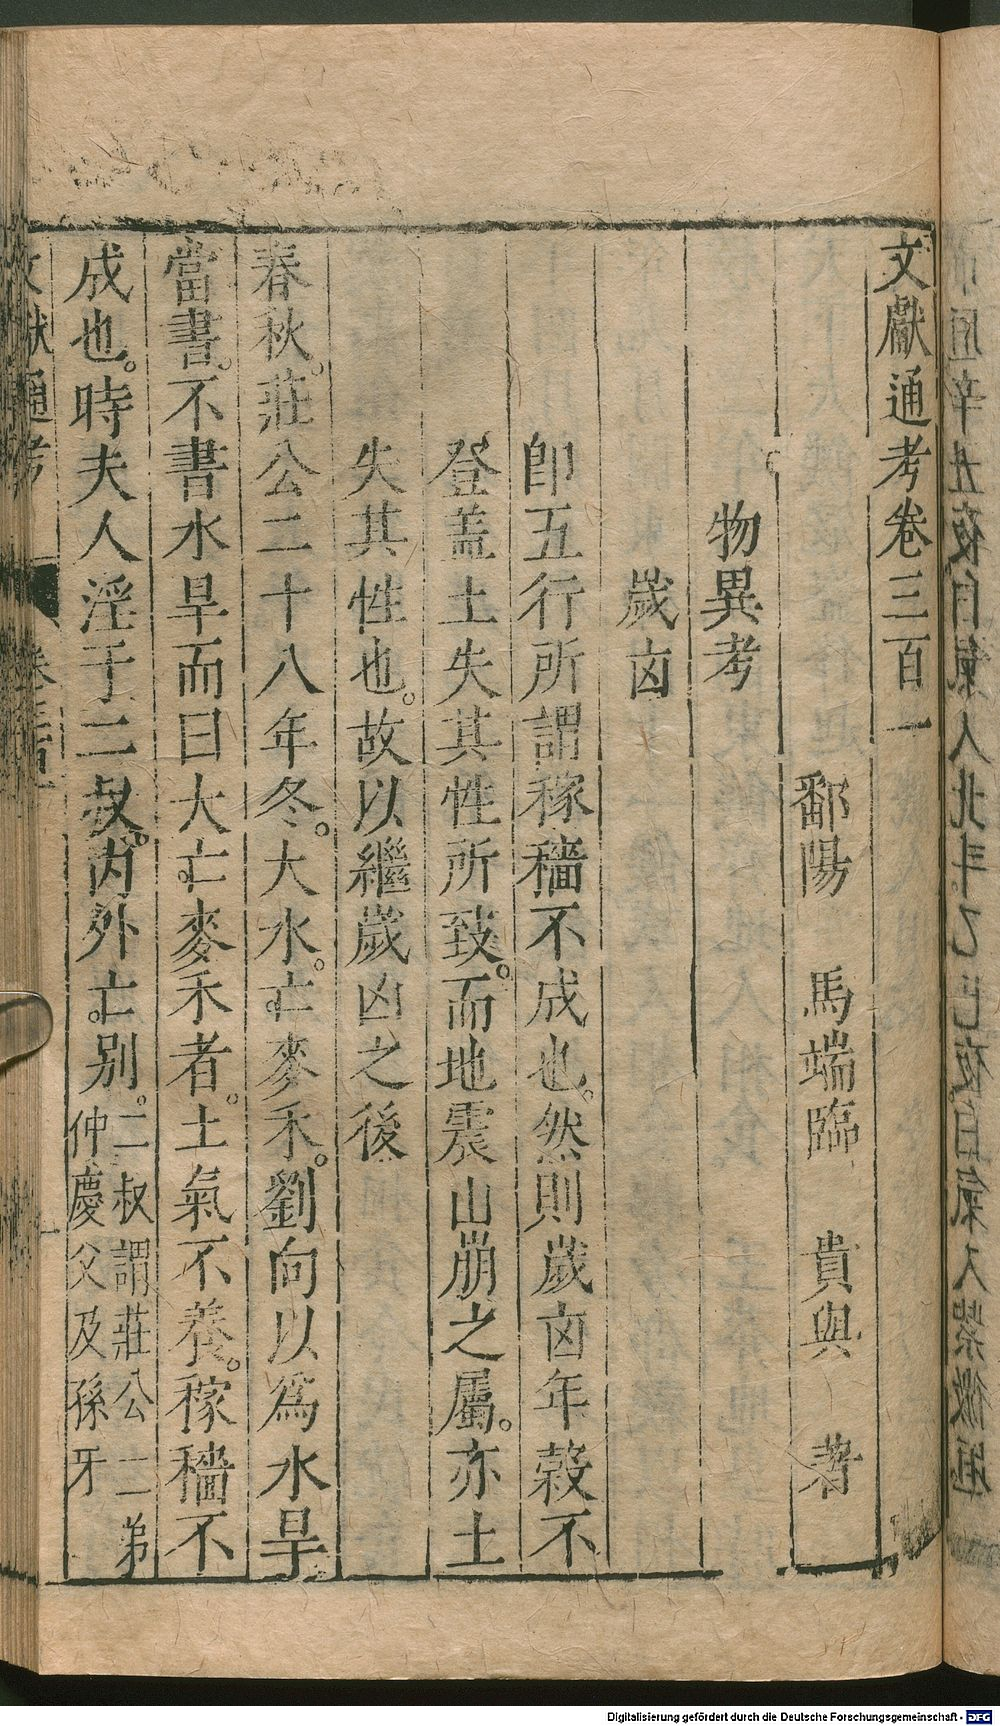 文獻通考卷三百一
鄱陽 馬端臨 貴與 著
物異考
歲凶
卽五行所謂稼穡不成也。然則歲凶年穀不
登蓋土失其性所致。而地震山崩之屬。亦土
失其性也。故以繼歲凶之後
春秋。莊公二十八年冬。大水。亡麥禾。劉向以爲水旱
當書。不書水旱而曰大亡麥禾者。土氣不養。稼穡不
成也。時夫人淫于二叔。內外亡别。二叔謂莊公二弟
仲慶父及孫牙
文獻通考 卷三百一 一
Digitalisierung gefördert durch die Deutsche Forschungsgemeinschaft - DFG